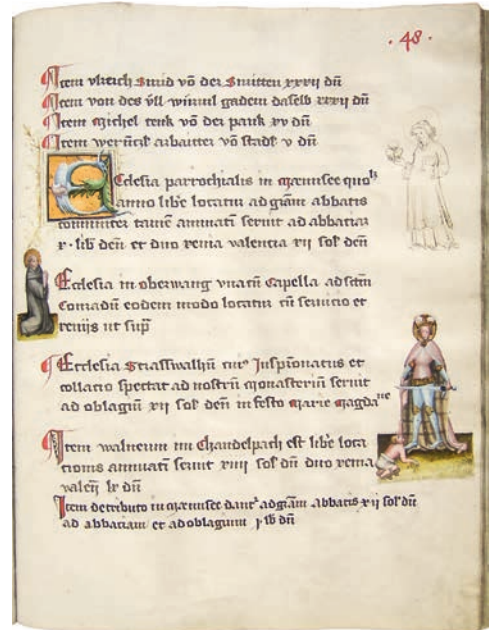 · 48 ·
Item vlreich Smid võ der Smitten xxxij dñ
Item von des vll wimml gadem daselb xxxij dñ
Item Michel tenk võ der pank xv dñ
Item arbaitter võ stadl v dñ
Ecclesia parrochialis in Mænnsee
anno libe locatur ad grãm abbatis
tamē annuatĩ seruit ad abbaciaz
x · lib deñ et duo xenia valencia xij sol deñ
Ecclesia in oberwang capella ad sctm
Conradũ eodem modo locatur cũ seruicio et
xenijs ut sup
Ecclesia Strasswalhñ Inspectionatus et
collacio spectat ad nostrũ monasteriũ seruit
ad oblagiũ xij sol deñ in festo Marie Magda
Item walneum im Chandelpach est libe loca
cionis annuatĩ seruit xiiij sol dñ duo xenia
valeñ lx dñ
Item de tributo in Mænnsee ad grãm abbatis xij sol dñ
ad abbaciam et ad oblagium j lb dñ